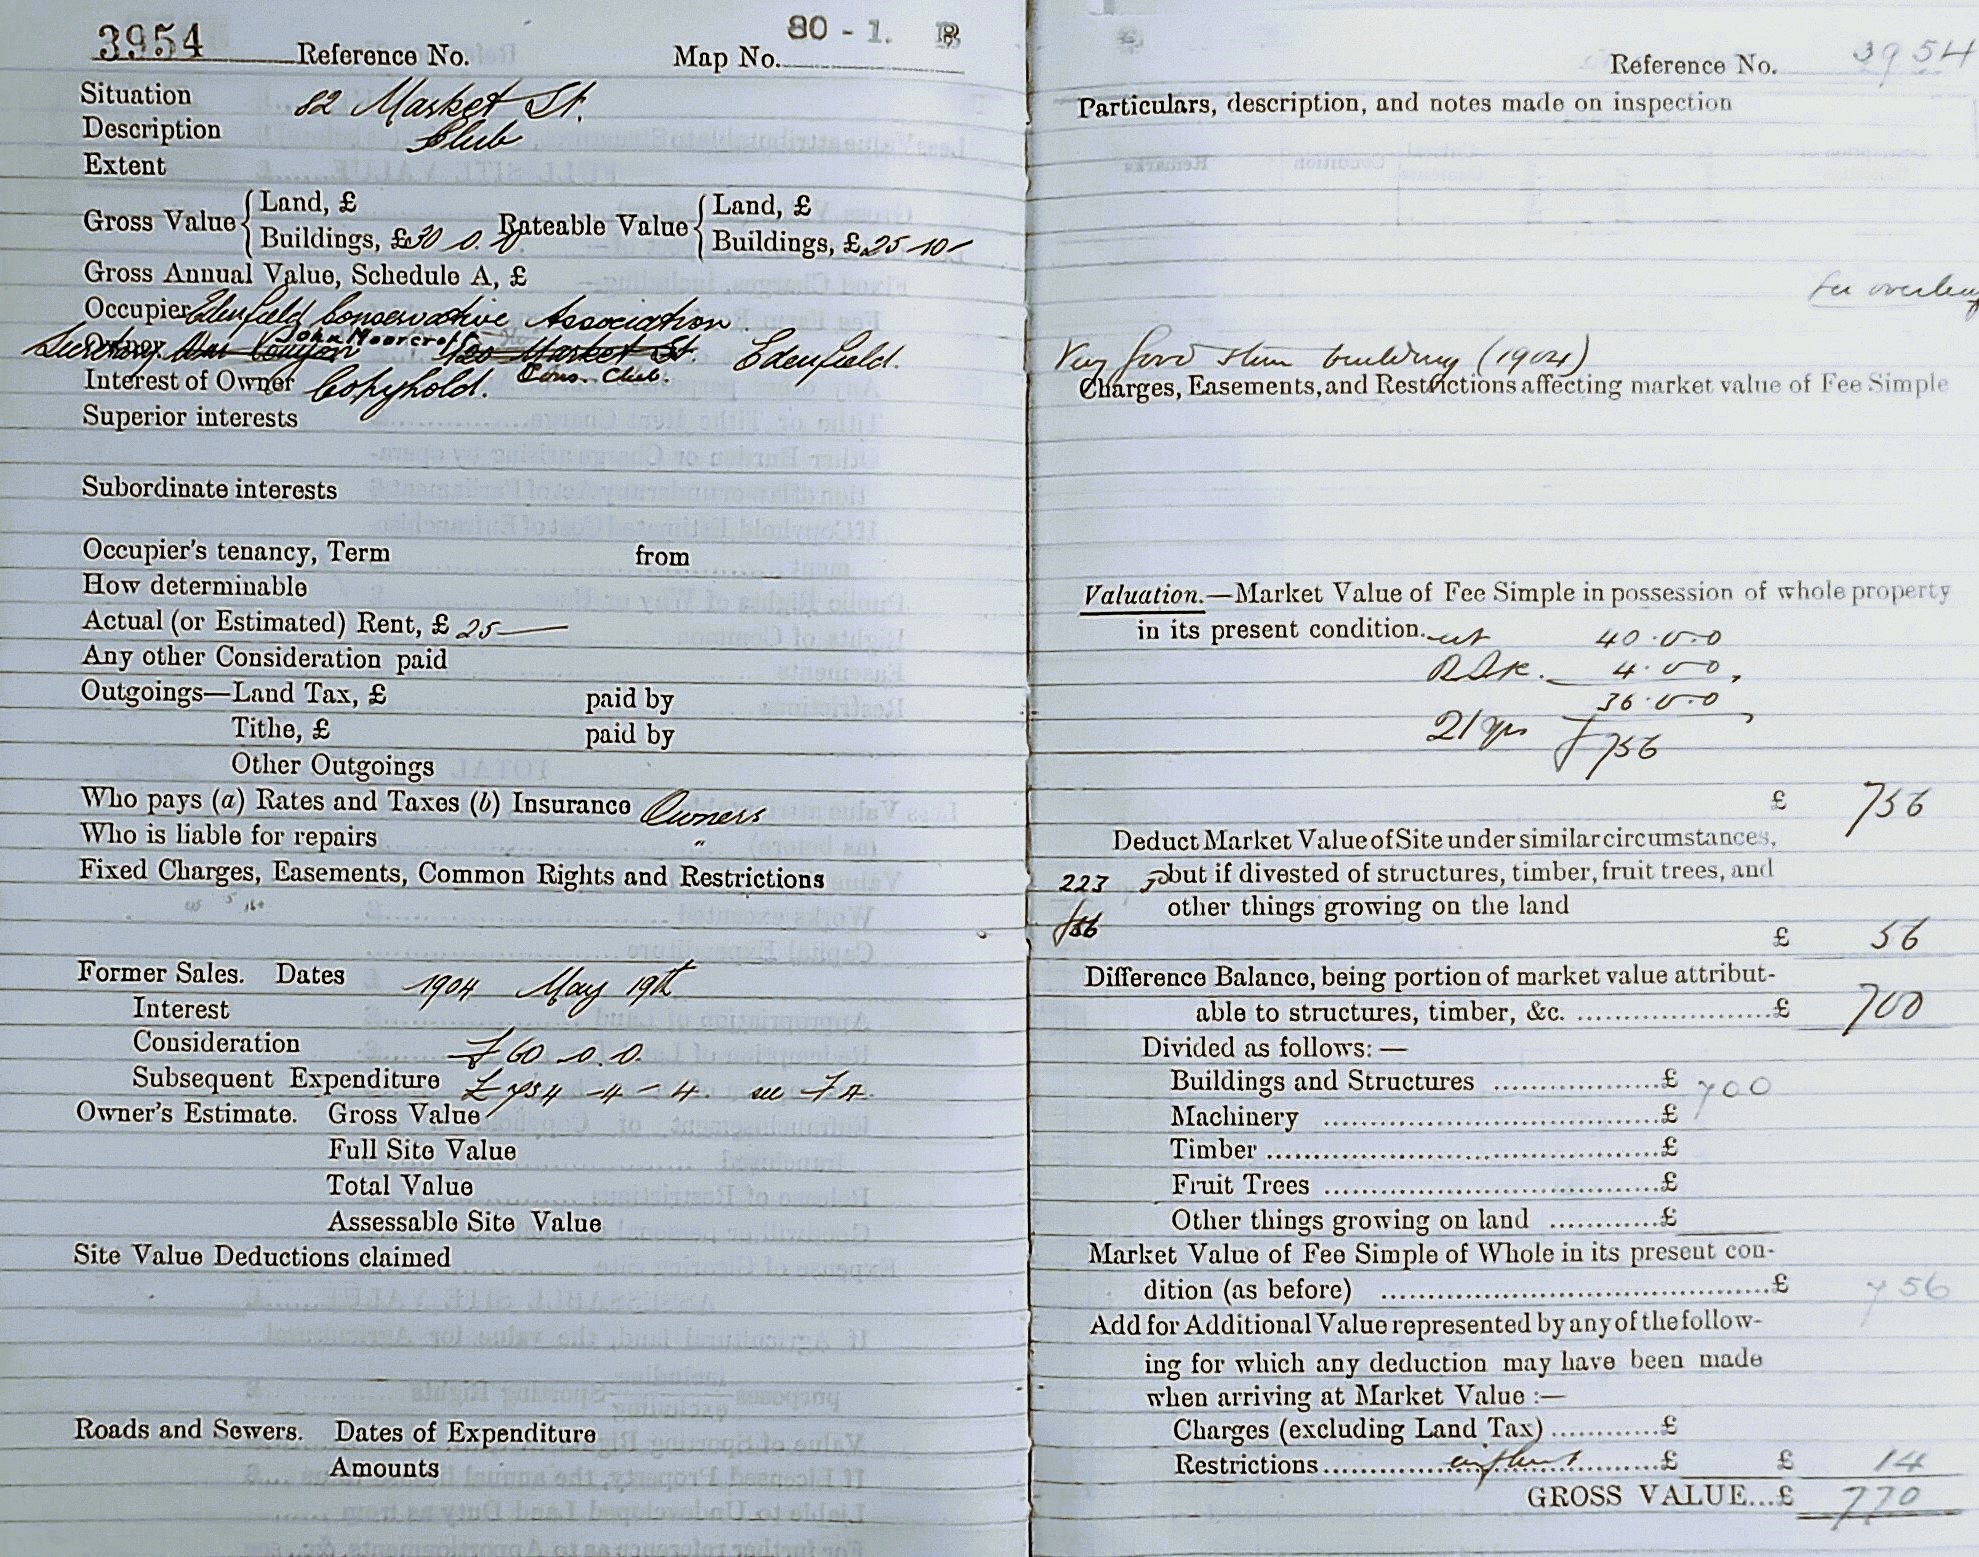 3954 Reference No. Map No. 80 - 1. B
Situation 82 Market St.
Description Club
Extent
Gross Value { Land, £ Rateable Value { Land, £
Buildings, £ 30 . 0 . 0 Buildings, £ 25 - 10 -
Gross Annual Value, Schedule A, £
Occupier Edenfield Conservative Association.
John Moorcroft
Owner Secretary. 120 Market St. Edenfield.
Cons. Club.
Interest of Owner Copyhold.
Superior interests
Subordinate interests
Occupier's tenancy, Term from
How determinable
Actual (or Estimated) Rent, £ 25 —
Any other Consideration paid
Outgoings—Land Tax, £ paid by
Tithe, £ paid by
Other Outgoings
Who pays (a) Rates and Taxes (b) Insurance Owners
Who is liable for repairs "
Fixed Charges, Easements, Common Rights and Restrictions
Former Sales. Dates 1904 May 19th
Interest
Consideration £60 . 0 . 0.
Subsequent Expenditure £734 - 4 - 4. see F A.
Owner's Estimate. Gross Value
Full Site Value
Total Value
Assessable Site Value
Site Value Deductions claimed
Roads and Sewers. Dates of Expenditure
Amounts
Reference No. 3954
Particulars, description, and notes made on inspection
See overleaf
Very good stone building (1904)
Charges, Easements, and Restrictions affecting market value of Fee Simple
Valuation.—Market Value of Fee Simple in possession of whole property
in its present condition. 40 . 0 . 0
4 . 0 0
36 . 0 . 0
21 yrs £756
£ 756
Deduct Market Value of Site under similar circumstances,
223 but if divested of structures, timber, fruit trees, and
other things growing on the land
£56
£ 56
Difference Balance, being portion of market value attribut-
able to structures, timber, &c. £ 700
Divided as follows: —
Buildings and Structures £ 700
Machinery £
Timber £
Fruit Trees £
Other things growing on land £
Market Value of Fee Simple of Whole in its present con-
dition (as before) £ 756
Add for Additional Value represented by any of the follow-
ing for which any deduction may have been made
when arriving at Market Value :—
Charges (excluding Land Tax) £
Restrictions £ £ 14
GROSS VALUE...£ 770